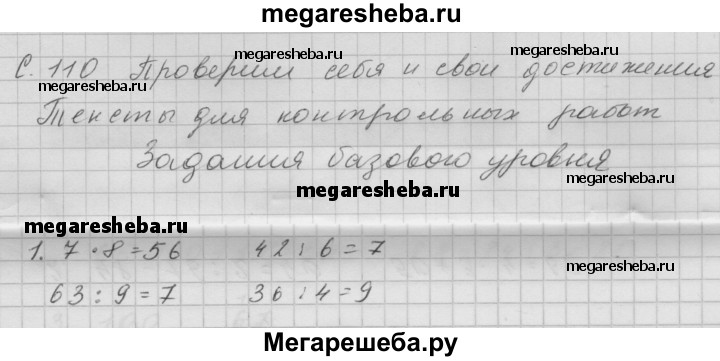 megaresheba.ru
megaresheba.ru
С. 110 Проверим себя и свои достижения
megaresheba.ru
megaresheba.ru
Тексты для контрольных работ
Задания базового уровня
megaresheba.ru
megaresheba.ru
megaresheba.ru
1. 7 · 8 = 56 42 : 6 = 7
megaresheba.ru
63 : 9 = 7 36 : 4 = 9
Мегарешеба.ру